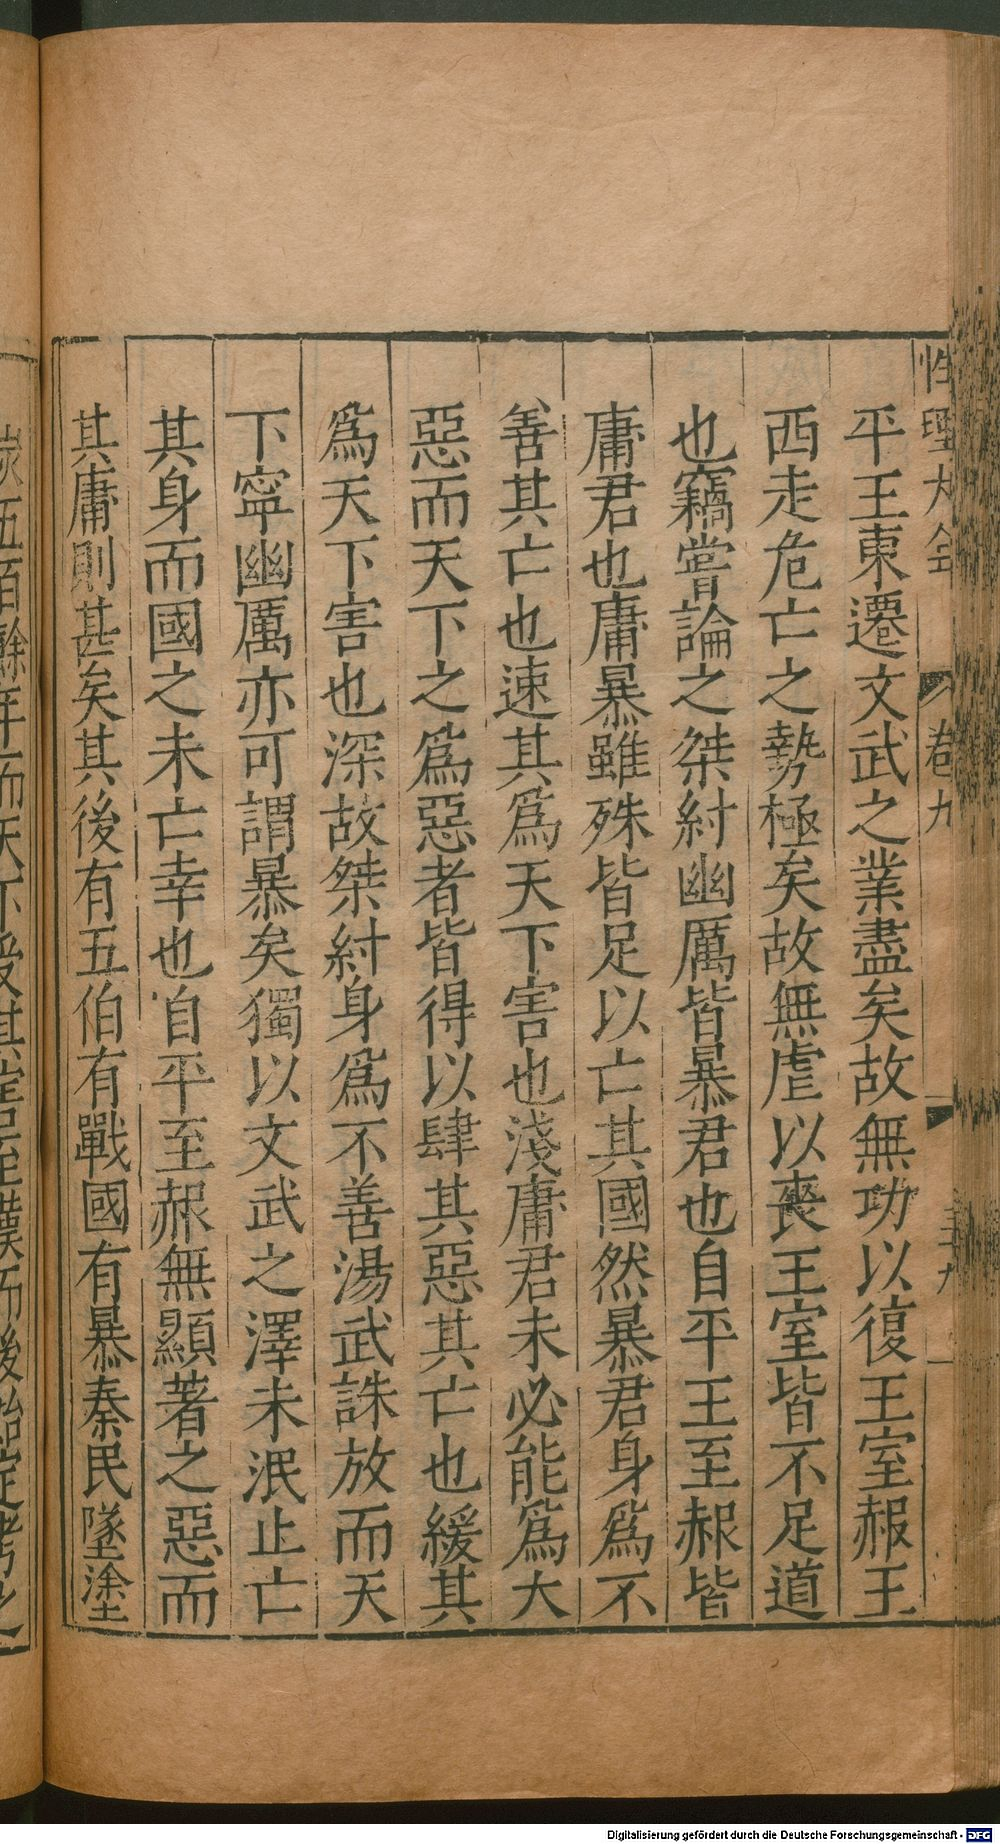 性理大全
卷九
平王東遷文武之業盡矣故無功以復王室赧王
西走危亡之勢極矣故無虐以喪王室皆不足道
也竊嘗論之桀紂幽厲皆暴君也自平王至赧皆
庸君也庸暴雖殊皆足以亡其國然暴君身為不
善其亡也速其為天下害也淺庸君未必能為大
惡而天下之為惡者皆得以肆其惡其亡也緩其
為天下害也深故桀紂身為不善湯武誅放而天
下寧幽厲亦可謂暴矣獨以文武之澤未泯止亡
其身而國之未亡幸也自平至赧無顯著之惡而
其庸則甚矣其後有五伯有戰國有暴秦民墜塗
Digitalisierung gefördert durch die Deutsche Forschungsgemeinschaft - DFG